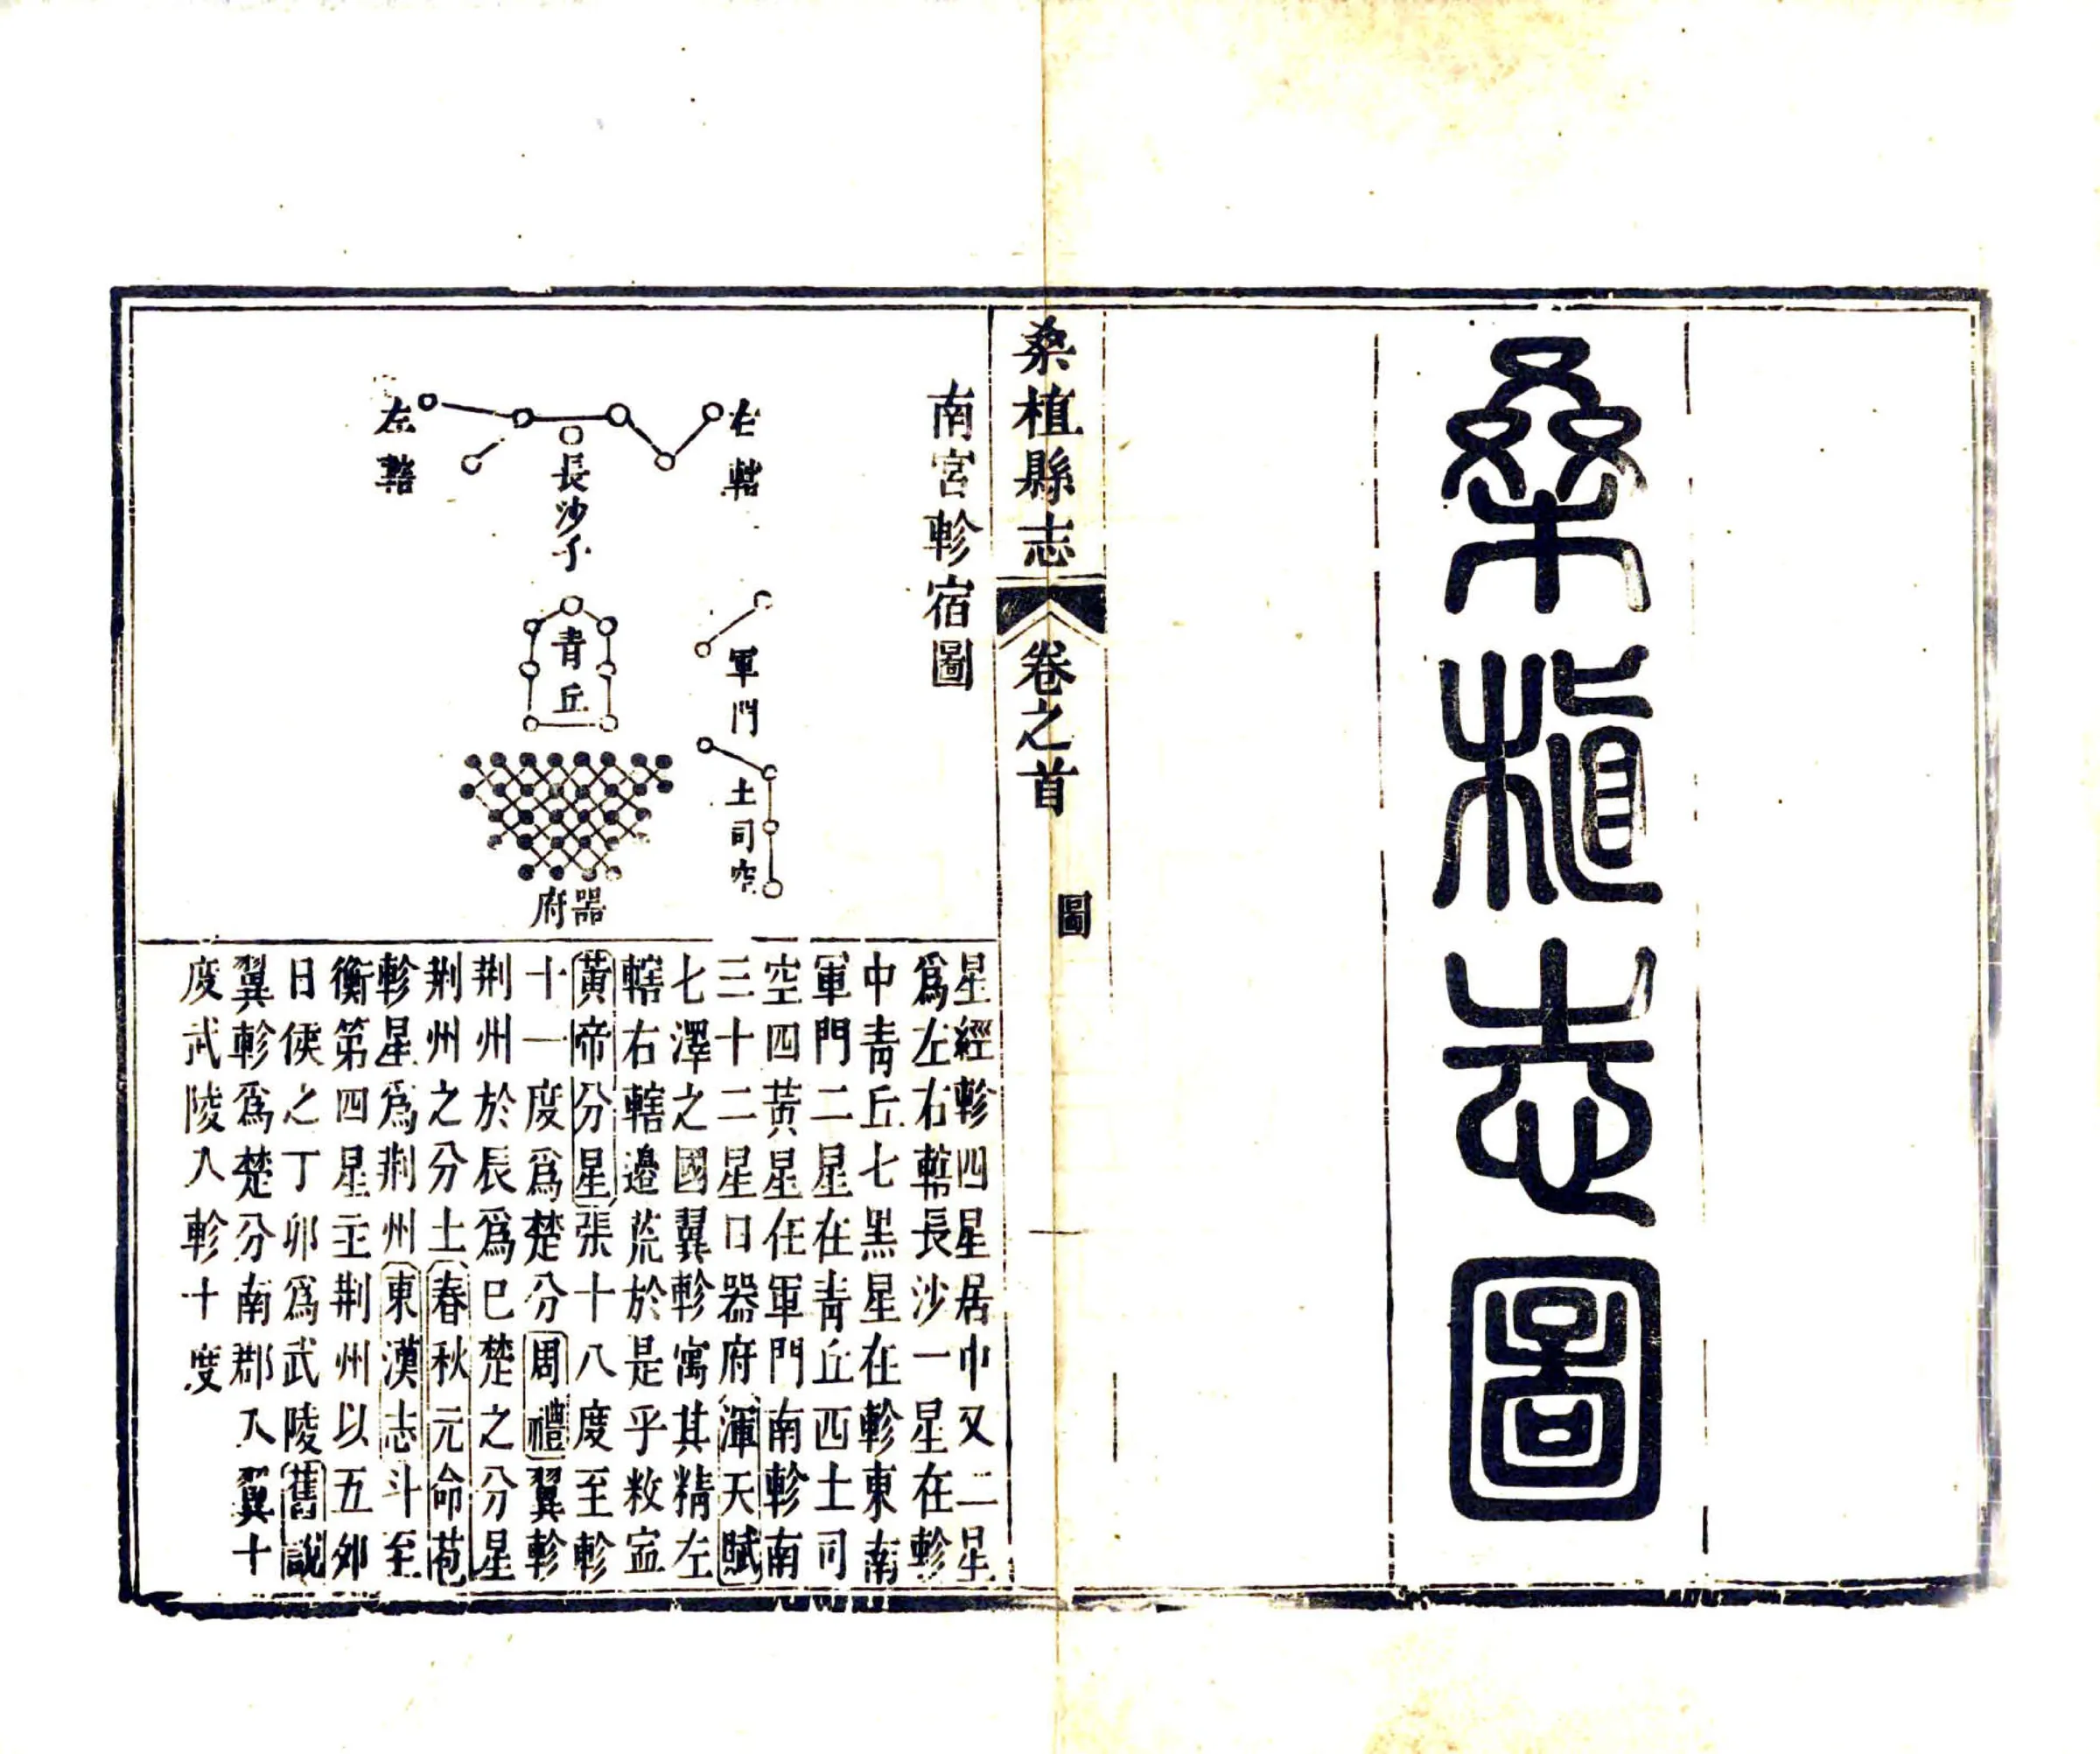 桑植志圖
桑植縣志
卷之首
圖
南宮軫宿圖
右轄
左轄
長沙子
軍門
青丘
土司空
器府
星經軫四星居中又二星
爲左右轄長沙一星在軫
中青丘七黑星在軫東南
軍門二星在青丘西土司
空四黃星在軍門南軫南
三十二星曰器府渾天賦
七澤之國翼軫寓其精左
轄右轄邉荒於是乎敉寍
黃帝分星張十八度至軫
十一度爲楚分周禮翼軫
荆州於辰爲巳楚之分星
荆州之分土春秋元命苞
軫星爲荆州東漢志斗至
衡第四星主荆州以五夘
日𠋫之丁卯爲武陵舊說
翼軫爲楚分南郡入翼十
度武陵入軫十度